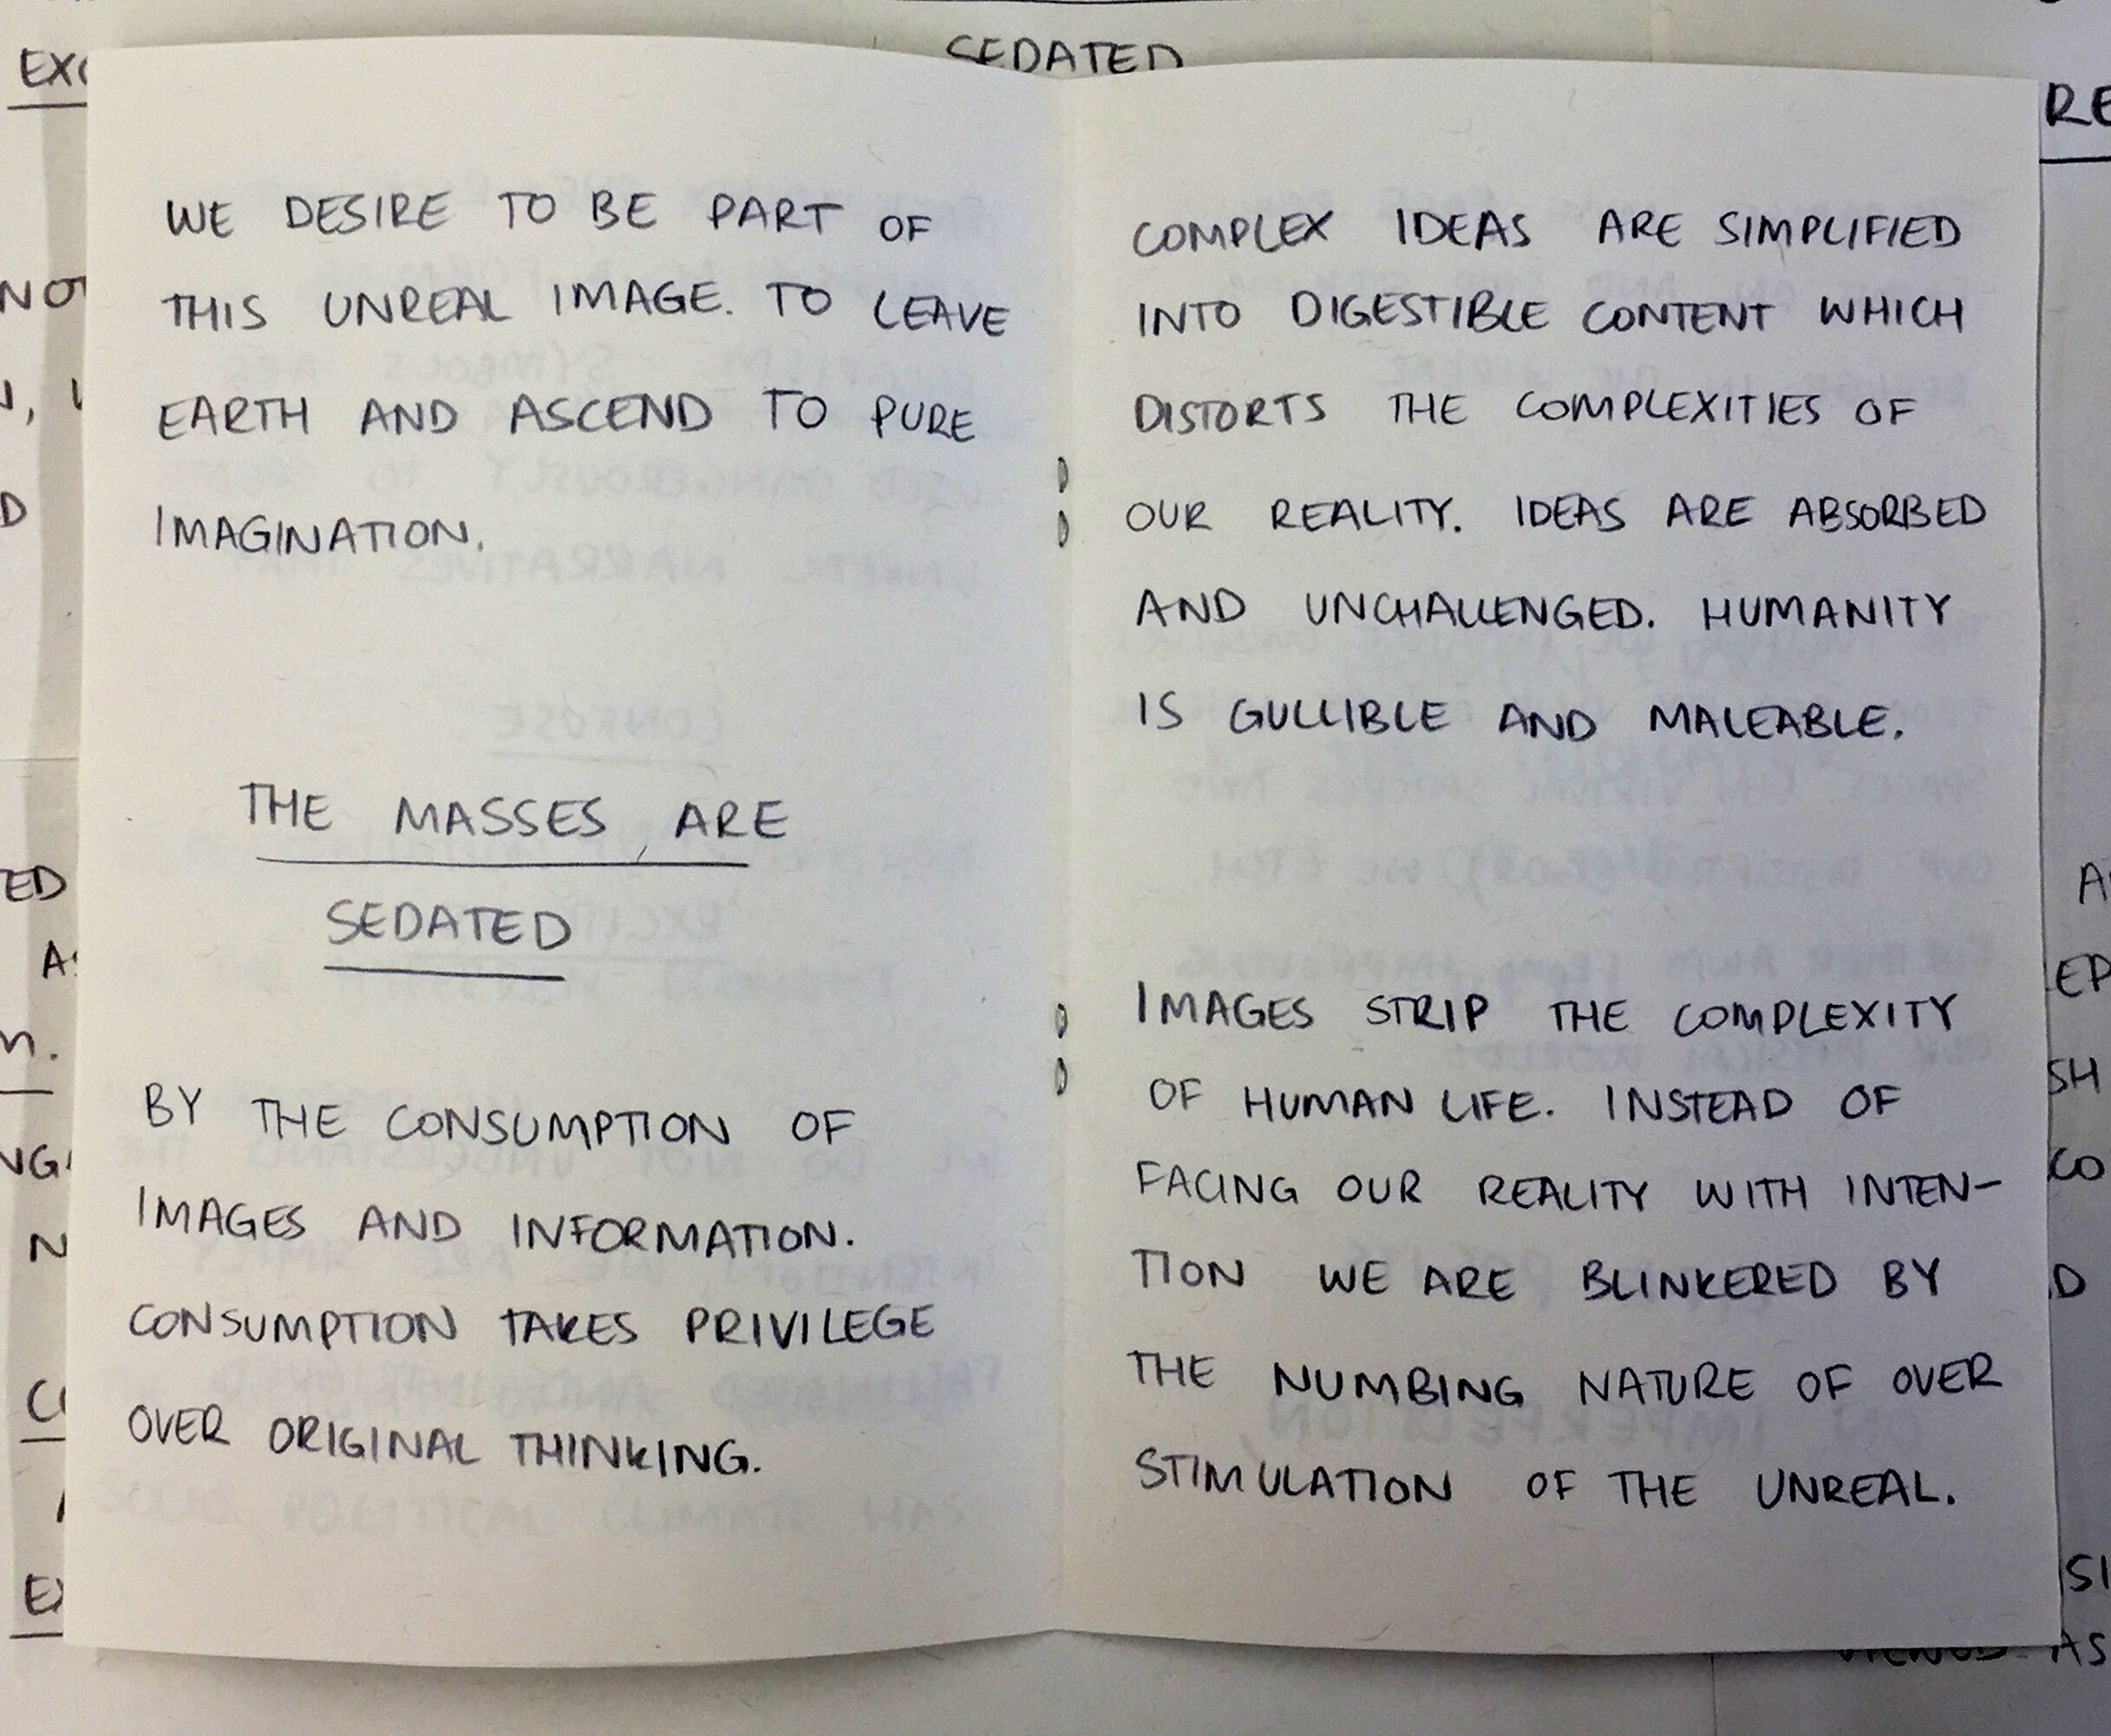 SEDATED
WE DESIRE TO BE PART OF
THIS UNREAL IMAGE. TO LEAVE
EARTH AND ASCEND TO PURE
IMAGINATION.
THE MASSES ARE
SEDATED
BY THE CONSUMPTION OF
IMAGES AND INFORMATION.
CONSUMPTION TAKES PRIVILEGE
OVER ORIGINAL THINKING.
COMPLEX IDEAS ARE SIMPLIFIED
INTO DIGESTIBLE CONTENT WHICH
DISTORTS THE COMPLEXITIES OF
OUR REALITY. IDEAS ARE ABSORBED
AND UNCHALLENGED. HUMANITY
IS GULLIBLE AND MALEABLE.
IMAGES STRIP THE COMPLEXITY
OF HUMAN LIFE. INSTEAD OF
FACING OUR REALITY WITH INTEN-
TION WE ARE BLINKERED BY
THE NUMBING NATURE OF OVER
STIMULATION OF THE UNREAL.